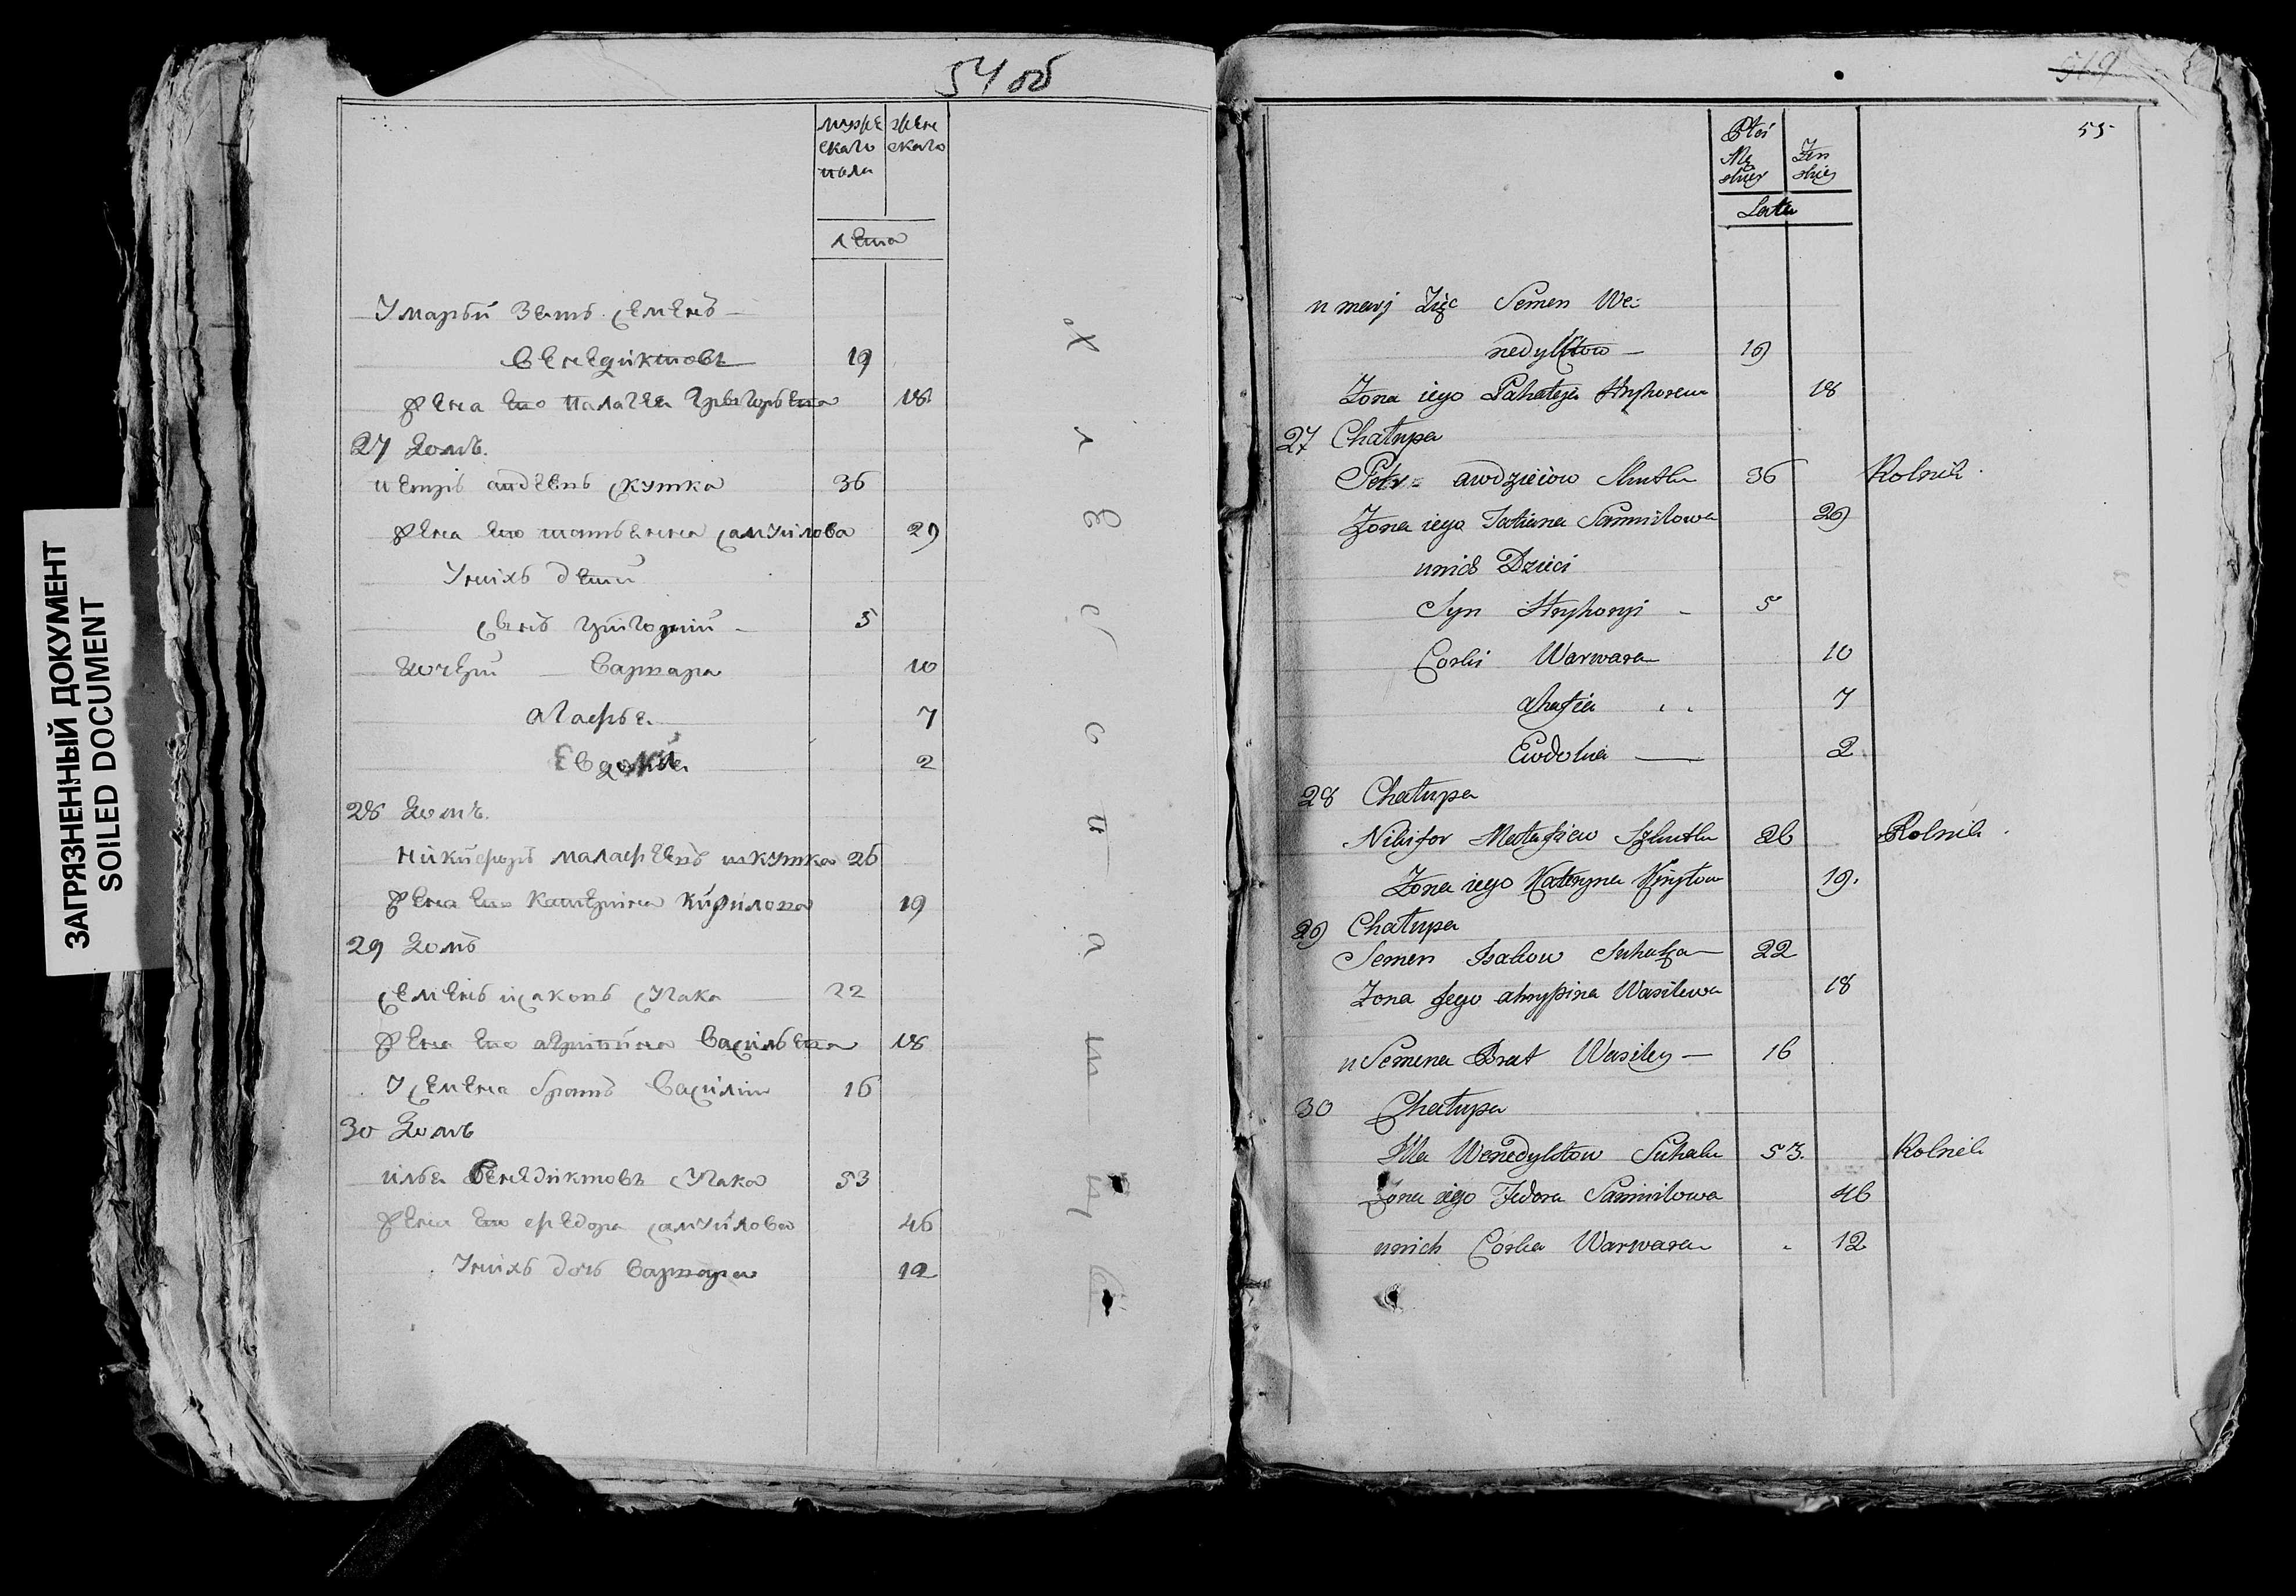 ЗАГРЯЗНЕННЫЙ ДОКУМЕНТ
SOILED DOCUMENT
54 об
муже женс
скаго скаго
пола
лета
Умарьи Зять Семенъ
Венедиктовъ 19
жена его Палагея Григорьева 18
27 Домъ.
Петръ авдеевъ скутка 36
жена его татьянна самуилова 29
Унихъ дети
Сынъ григорий 5
Дочери Варвара 10
агафья 7
Евдокия 2
28 Домъ.
Никифоръ малафеевъ шкутка 26
жена его Катерина Кирилова 19
29 Домъ
Семенъ исаковъ сугака 22
жена его агрипина Васильева 18
У семена братъ Василии 16
30 Домъ
илья Венедиктовъ Сугака 53
жена его федора самуилова 46
Унихъ дочь Варвара 12
хлебопашцы
519
55
Płci
Mę Żeń
skiey skiej
Lata
u maryi Zięć Semen We
nedyktow 19
Żona iego Pahaleja Hryhorewa 18
27 Chałupa
Petr awdzieiow Skutka 36 Rolnik
Żona iego Tatiana Samuiłowa 29
unich Dzieci
Syn Hryhoryi 5
Corki Warwara 10
ahafia 7
Ewdokia 2
28 Chałupa
Nikifor Małafiew Szkutka 26 Rolnik
Żona iego Kateryna Kiryłow 19.
29 Chałupa
Semen Isakow Suhaka 22
Żona Jego ahrypina Wasilewa 18
u Semena Brat Wasiley 16
30 Chałupa
Illa Wenedyktow Suhaka 53 Rolnik
Żona iego Fedora Samuiłowa 46
unich Corka Warwara 12